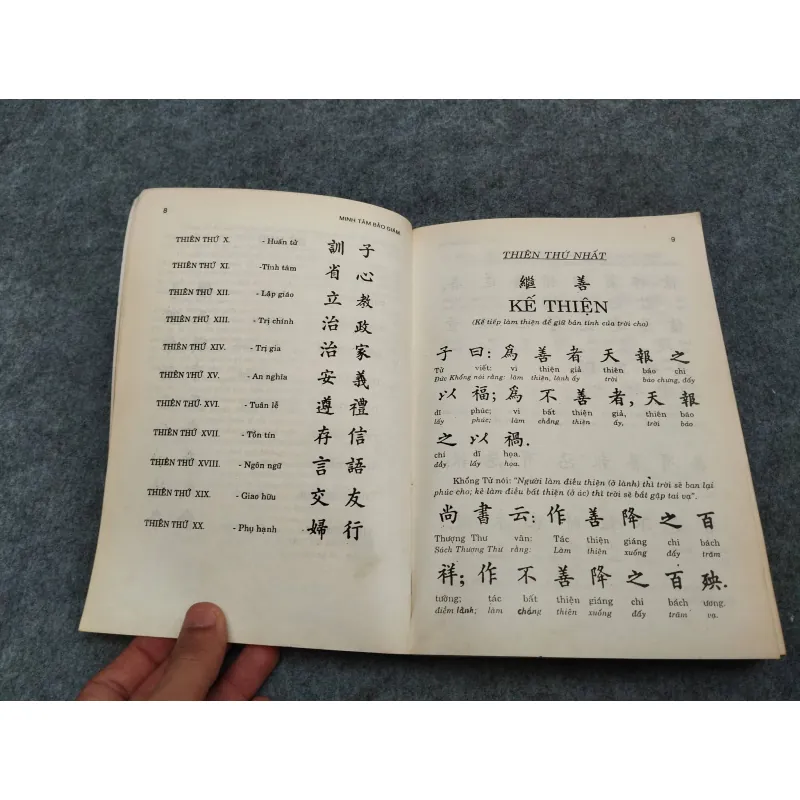 8
MINH TÂM BẢO GIÁM
THIÊN THỨ X. - Huấn tử 訓 子
THIÊN THỨ XI. -Tỉnh tâm 省 心
THIÊN THỨ XII. - Lập giáo 立 教
THIÊN THỨ XIII. - Trị chính 治 政
THIÊN THỨ XIV. - Trị gia 治 家
THIÊN THỨ XV. - An nghĩa 安 義
THIÊN THỨ XVI. - Tuân lễ 遵 禮
THIÊN THỨ XVII. - Tồn tín 存 信
THIÊN THỨ XVIII. - Ngôn ngữ 言 語
THIÊN THỨ XIX. - Giao hữu 交 友
THIÊN THỨ XX. - Phụ hạnh 婦 行
9
THIÊN THỨ NHẤT
繼 善
KẾ THIỆN
(Kế tiếp làm thiện để giữ bản tính của trời cho)
子 曰: 爲 善 者 天 報 之
Tử viết: vi thiện giả thiên báo chi
Đức Khổng nói rằng: làm thiện, lành ấy trời báo chưng, đấy
以 福; 爲 不 善 者, 天 報
dĩ phúc; vi bất thiện giả, thiên báo
lấy phúc; làm chẳng thiện ấy, trời báo
之 以 禍.
chi dĩ họa.
đấy lấy họa.
Khổng Tử nói: "Người làm điều thiện (ở lành) thì trời sẽ ban lại
phúc cho; kẻ làm điều bất thiện (ở ác) thì trời sẽ bắt gặp tai vạ".
尚 書 云: 作 善 降 之 百
Thượng Thư vân: Tác thiện giáng chi bách
Sách Thượng Thư rằng: Làm thiện xuống đấy trăm
祥; 作 不 善 降 之 百 殃.
tường; tác bất thiện giáng chi bách ương.
điềm lành; làm chẳng thiện xuống đấy trăm vạ.